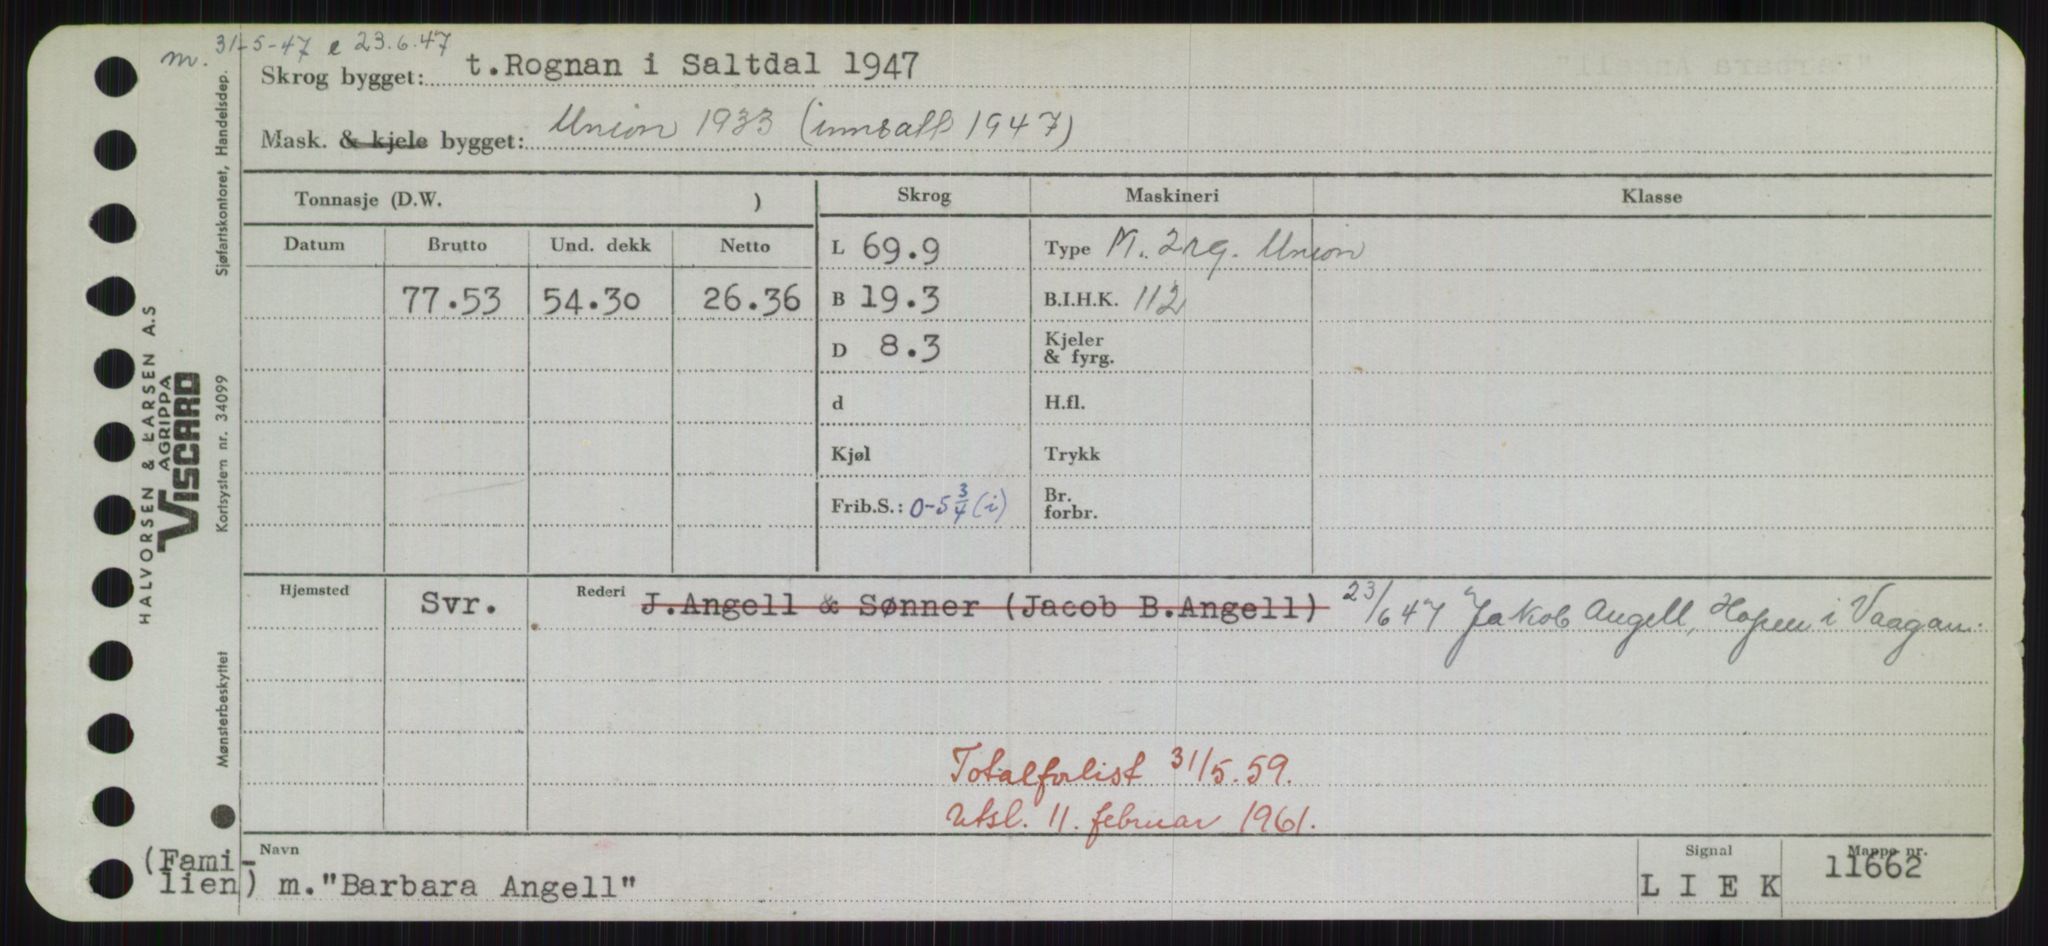 m. 31-5-47 e 23.6.47
Skrog bygget: t.Rognan i Saltdal 1947
Mask. & kjele bygget: Union 1933 (innsatt 1947)
Tonnasje (D.W. )
Skrog
Maskineri
Klasse
Datum Brutto Und. dekk Netto
L 69.9
Type M. 2 Union
77.53 54.30 26.36
B 19.3
B.I.H.K. 112
D 8.3
Kjeler & fyrg.
d
H.fl.
Kjøl
Trykk
Frib.S.: 0-5 3/4 (i)
Br. forbr.
Hjemsted Svr.
Rederi J.Angell & Sønner (Jacob B.Angell) 23/6 47 Jakob Angell, Hopen i Vaagan.
Totalforlist 31/5.59.
Utsl. 11. februar 1961.
Navn
(Fami-
lien) m."Barbara Angell"
Signal
L I E K
Mappe nr.
11662
Sjøfartskontoret, Handelsdep.
Kortsystem nr. 34099
Mønsterbeskyttet
HALVORSEN & LARSEN A.S
AGRIPPA
VISCARD